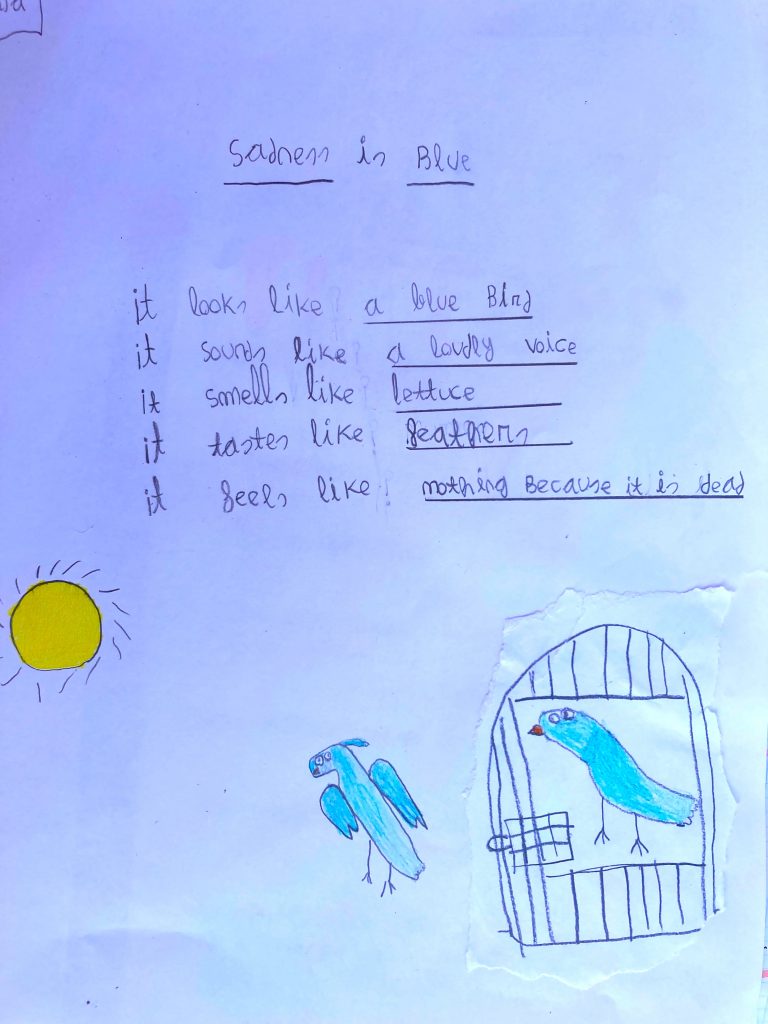 Sadness is Blue
it looks like a blue Bird
it sounds like a loudly voice
it smells like lettuce
it tastes like feathers
it feels like nothing Because it is dead